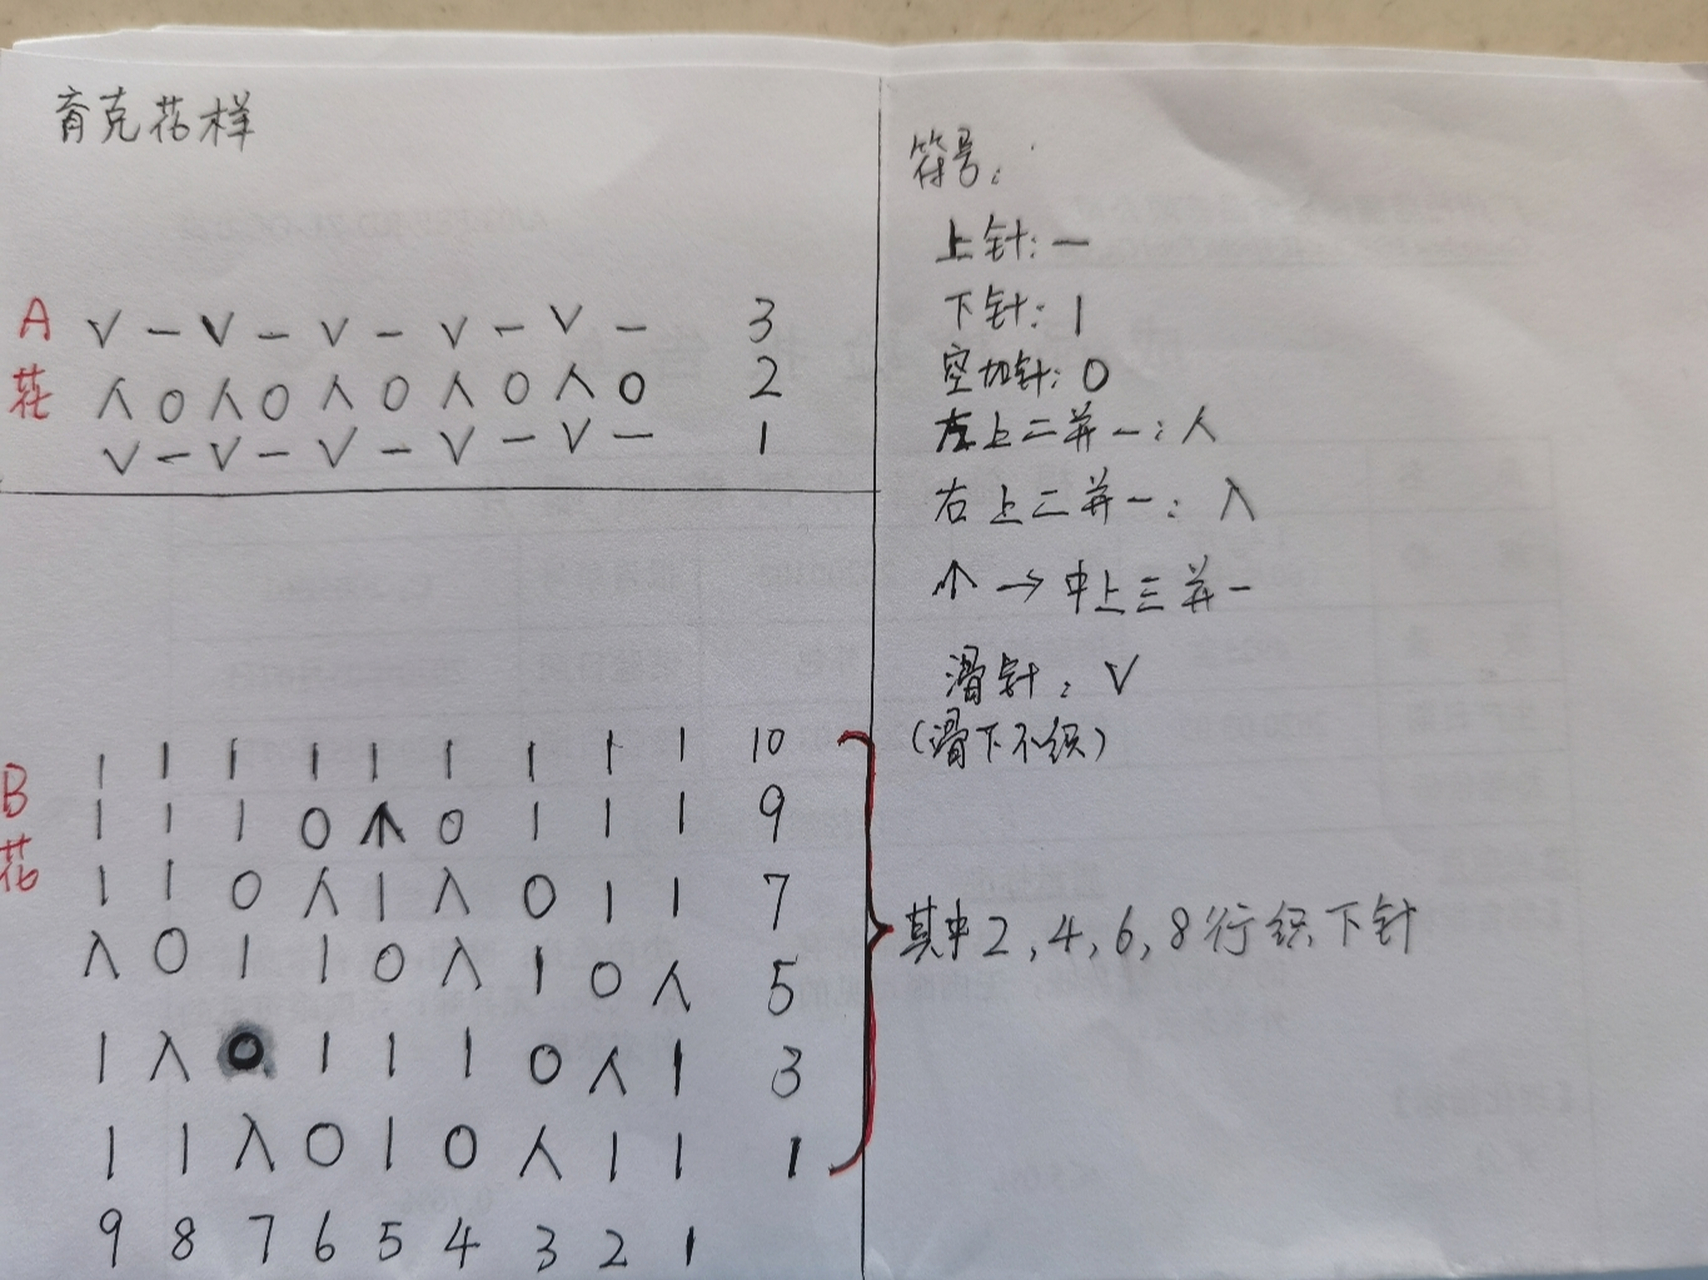 育克花样
A花
V — V — V — V — V — 3
人 O 人 O 人 O 人 O 人 O 2
V — V — V — V — V — 1
B花
| | | | | | | | | 10
| | | O 个 O | | | 9
| | O 人 | 入 O | | 7
入 O | | O 入 | O 人 5
| 入 O | | | O 人 | 3
| | 入 O | O 人 | | 1
9 8 7 6 5 4 3 2 1
符号:
上针: —
下针: |
空加针: O
左上二并一: 人
右上二并一: 入
个 → 中上三并一
滑针: V
(滑下不织)
其中2,4,6,8行织下针